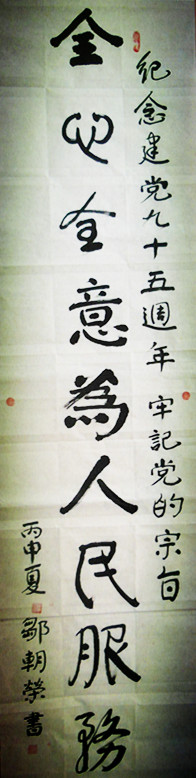 纪念建党九十五週年 牢記党的宗旨
全心全意為人民服務
丙申夏 鄒朝榮書